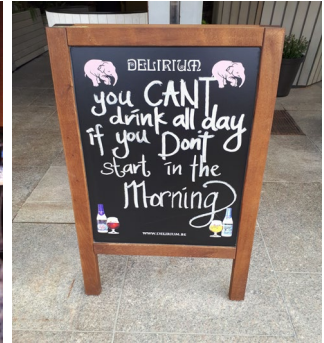 DELIRIUM
you CANT
drink all day
if you Dont
start in the
Morning
WWW.DELIRIUM.BE